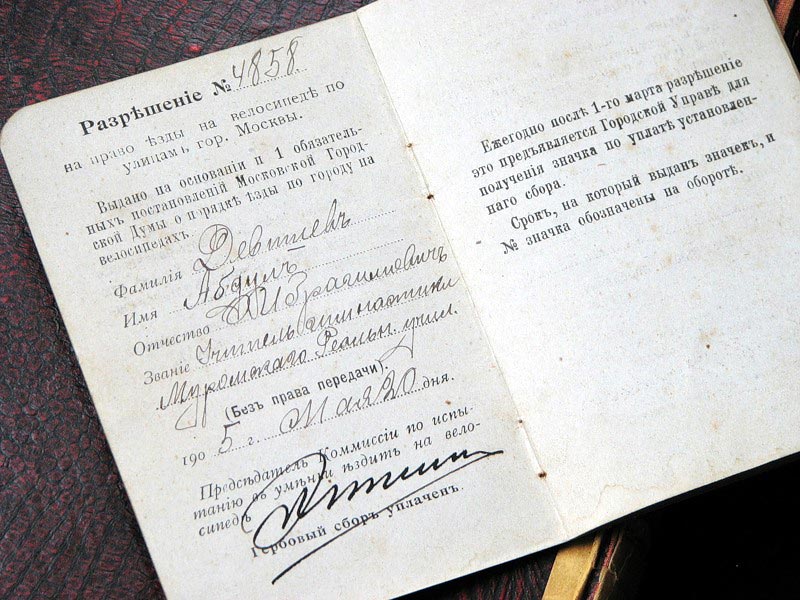 Разрѣшеніе № 4858
на право ѣзды на велосипедѣ по
улицамъ гор. Москвы.
Выдано на основаніи п 1 обязатель-
ныхъ постановленій Московской Город-
ской Думы о порядкѣ ѣзды по городу на
велосипедахъ.
Фамилія Девишевъ
Имя Абдулъ
Отчество Ибрагимовичъ
Званіе Учитель гимнастики
Муромскаго Реальн. учил.
(Безъ права передачи).
1905 г. Мая 20 дня.
Предсѣдатель Коммиссіи по испы-
танію въ умѣніи ѣздить на вело-
сипедѣ
Гербовый сборъ уплаченъ.
Ежегодно послѣ 1-го марта разрѣшеніе
это предъявляется Городской Управѣ для
полученія значка по уплатѣ установлен-
наго сбора.
Срокъ, на который выданъ значекъ, и
№ значка обозначены на оборотѣ.